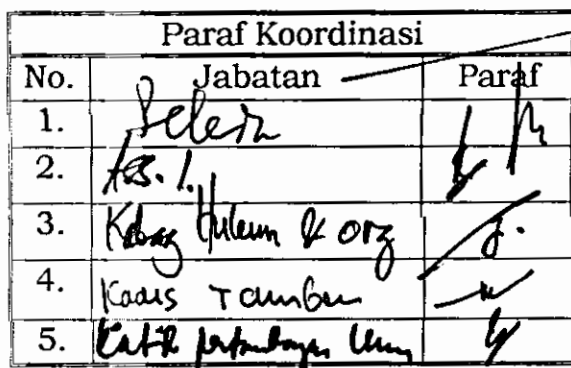 Paraf Koordinasi
No. Jabatan Paraf
1. Sekda
2. Ass. 1.
3. Kabag Hukum & org
4. Kadis Tamben
5. Kabid pertambangan Umum